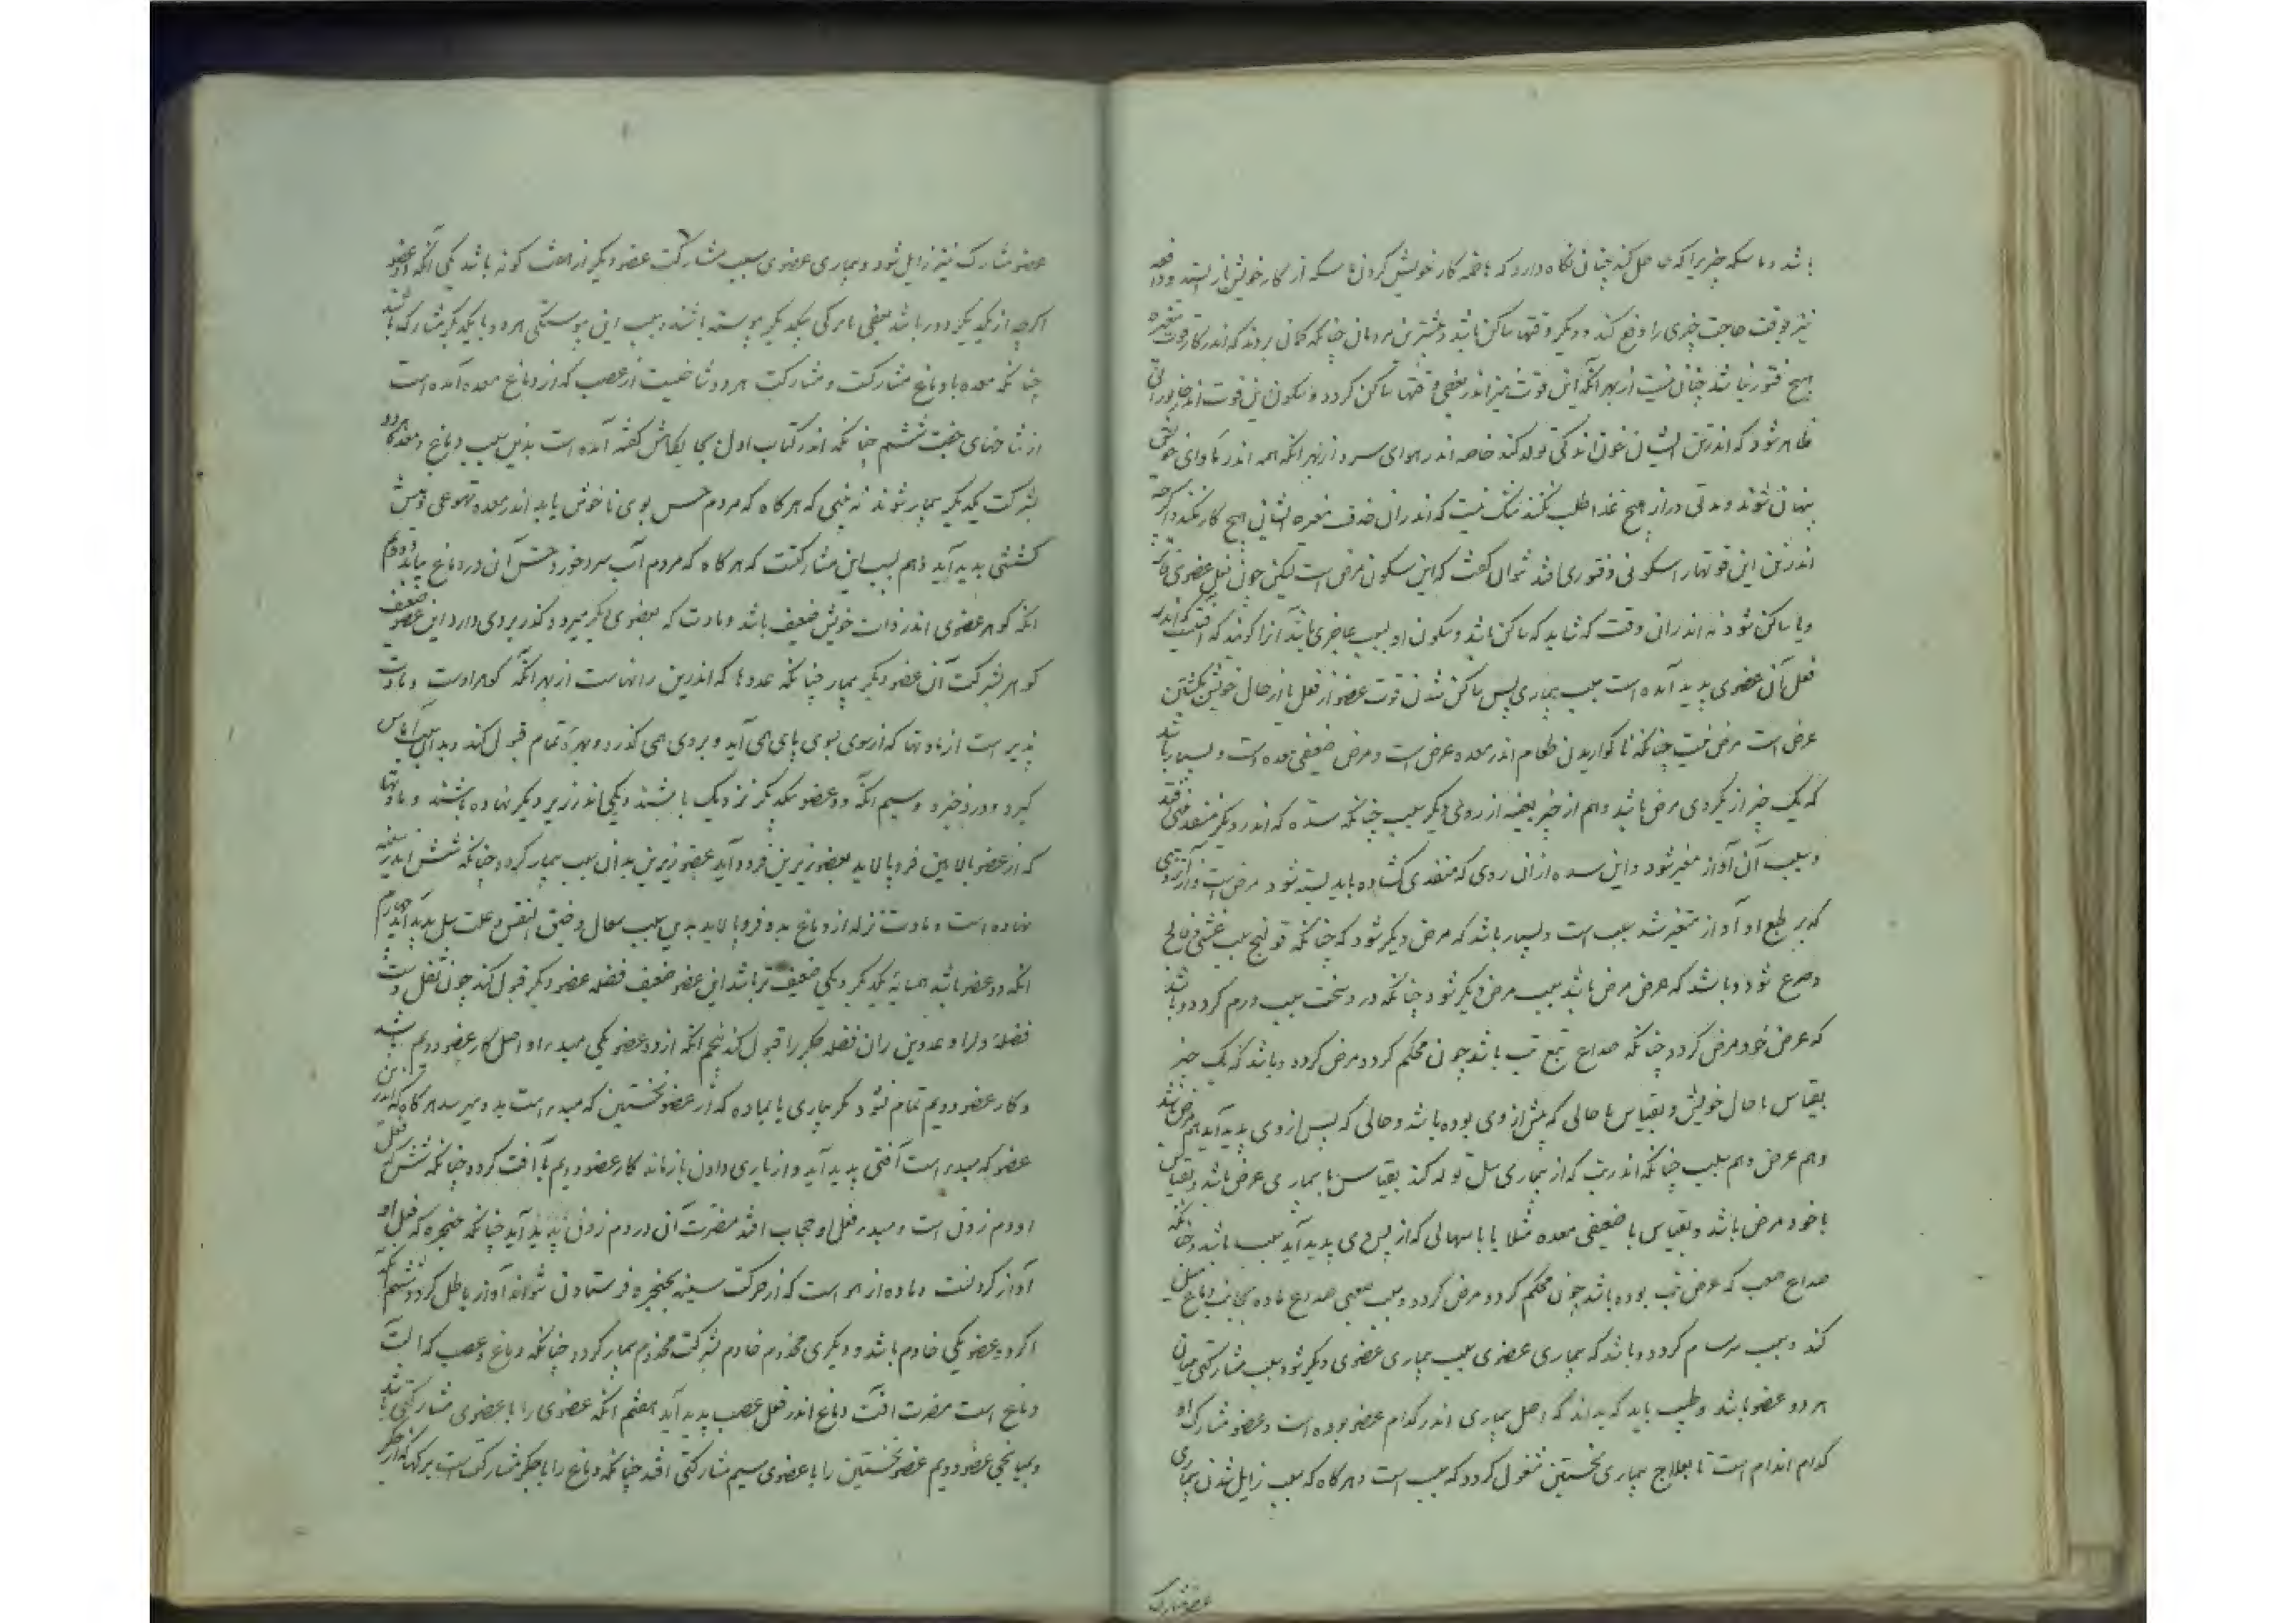 باشد و ماسکه چیزیرا که حاصل کند چنان نگاه دارد که هاضمه کار خویش کردن ماسکه از کار خویش باز ایستد و دافعه
نیز بوقت حاجت چیزی را دفع کند و دیگر وقتها ساکن باشد و بیشترین مردمان چنانکه گمان برند که اندر کار قوت مغیره
هیچ فتور نباشد چنان نیست از بهر آنکه این قوت نیز اندر بعضی وقتها ساکن گردد و سکون این قوت اندر جانورانی
ظاهر شود که اندر تن ایشان خون اندکی تولد کند خاصه اندر هوای سرد از بهر آنکه همه اندر ماوای خویش
پنهان شوند و مدتی دراز هیچ غذا طلب نکنند شک نیست که اندران مغیره ایشان هیچ کار نکند و اگرچه
اندرین این قوتها را سکونی و فتوری افتد نتوان گفت که این سکون مرض است لیکن چون فعل عضوی
و یا ساکن شود نه اندران وقت که شاید که ساکن باشد و سکون او بسبب عاجزی باشد آنرا گویند که آفتیست که اندر
فعل آن عضوی پدید آمده است بسبب بیماری پس ساکن شدن قوت عضو از فعل یا از حال خویش بگشتن
عرض است مرض نیست چنانکه ناگواریدن طعام اندر معده عرض است و مرض ضعیفی معده است و بسیار باشد
که یک چیز از یکروی مرض باشد و هم از چیز بعینه از روی دیگر سبب چنانکه سده که اندر دیگر منفذ افتد
و بسبب آن آواز متغیر شود و این سده از ان روی که منفذی گشاده باید بسته شود مرض است و از آن روی
که بر طبع او آواز متغیر شد سبب است و بسیار باشد که مرض دیگر شود که چنانکه قولنج سبب غشی و فالج
و صرع شود و باشد که عرض مرض باشد سبب مرض دیگر شود چنانکه درد سخت سبب ورم گردد و باشد
که عرض خود مرض گردد چنانکه صداع تبع تب باشد چون محکم گردد مرض گردد و باشد که یک چیز
بقیاس با حال خویش و بقیاس با حالی که پیش از وی بوده باشد و حالی که پس از وی پدید آید هم مرض باشد
و هم عرض و هم سبب چنانکه اندر تب که از بیماری سل تولد کند بقیاس با بیماری عرض باشد و بقیاس
با خود مرض باشد و بقیاس با ضعیفی معده مثلا یا با سهالی که از پس وی پدید آید سبب باشد و چنانکه
صداع صعب که عرض تب بوده باشد چون محکم گردد و مرض گردد و سبب صعبی صداع ماده بجانب دماغ میل
کند و سبب سرسام گردد و باشد که بیماری عضوی سبب بیماری عضوی دیگر شود سبب مشارکتی میان
هر دو عضو باشد و طبیب باید که بداند که اصل بیماری اندر کدام عضو بوده است و عضو مشارک او
کدام اندام است تا بعلاج بیماری نخستین مشغول گردد که سبب است و هرگاه که سبب زایل شدن بیماری
عضو مشارک
عضو مشارک نیز زایل شود و بیماری عضوی بسبب مشارکت عضو دیگر از هفت گونه باشد یکی آنکه دو عضو
اگرچه از یکدیگر دور باشد بعضی با رگی بیکدیگر پیوسته باشند و بسبب این پیوستگی هر دو با یکدیگر مشارک باشند
چنانکه معده با دماغ مشارکت و مشارکت هر دو شاخیست از عصب که از دماغ بمعده آمده است
از شاخهای جفت ششم چنانکه اندر کتاب اول بجایگاهش گفته آمده است بدین سبب دماغ و معده هر دو
بشرکت یکدیگر بیمار شوند نه بینی که هرگاه که مردم حس بوی ناخوش یابد اندر معده تهوعی و منش
گشتنی پدید آید و هم بسبب این مشارکتست که هرگاه که مردم آب سرد خورد حس آن در دماغ بیابد دوم
آنکه گوهر عضوی اندر ذات خویش ضعیف باشد و مادت که بعضوی دیگر میرود گذر بروی دارد این عضو ضعیف
گوهر بشرکت آن عضو دیگر بیمار چنانکه غدودها که اندر بن رانهاست از بهر آنکه گوهر اوست و مادت
پذیر است از مادتها که از سوی بسوی پای همی آید و بروی همی گذرد و بهره تمام قبول کند و بدان سبب آماس
گیرد و درد خیزد و سیم آنکه دو عضو بیکدیگر نزدیک باشند و یکی اندر زیر دیگر نهاده باشند و مادتها
که از عضو بالایین فرو پالاید بعضو زیرین فرود آید عضو زیرین بدان سبب بیمار گردد چنانکه شش اندر سینه
نهاده است و مادت نزله از دماغ بدو فرو پالاید بدین سبب سعال و ضیق النفس و علت سل پدید آید چهارم
آنکه دو عضو باشد همسایه یکدیگر و یکی ضعیف تر باشد این عضو ضعیف فضله عضو دیگر قبول کند چون بغل و دست
فضله دل را و غدد بن ران فضله جگر را قبول کند پنجم آنکه از دو عضو یکی مبدء را و اصل کار عضو دویم باشد
و کار عضو دویم تمام نشود مگر بیاری یا بماده که از عضو نخستین که مبدء است بدو میرسد هرگاه که اندر
عضو که مبدء است آفتی پدید آید و از یاری دادن بازماند کار عضو دویم با آفت گردد چنانکه شش که فعل
او دم زدن است و مبدء فعل او حجاب افتد مضرت آن در دم زدن پدید آید چنانکه حنجره که فعل او
آواز کردنست و ماده از هوا است که از حرکت سینه بحنجره فرستادن نتواند آواز باطل گردد ششم آنکه
اگر دو عضو یکی خادم باشد و دیگری مخدوم خادم بشرکت مخدوم بیمار گردد چنانکه دماغ و عصب که آلت
دماغ است مضرت آفت دماغ اندر فعل عصب پدید آید هفتم آنکه عضوی را با عضوی مشارکتی باشد
و بمیانجی عضو دویم عضو نخستین را با عضوی سیم مشارکتی افتد چنانکه دماغ را با جگر مشارکتست